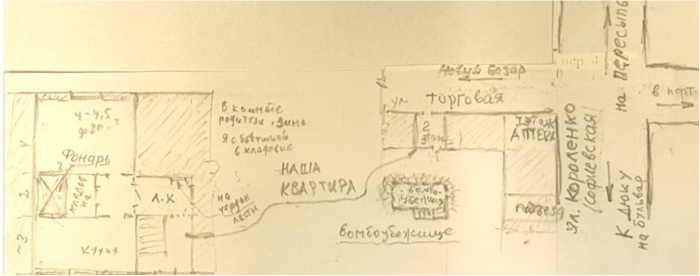 4-4,5
до 20 м²
Фонарь
кладов
ка
Кухня
4
~3
Л.К
в комнате
родители, Дима
Я с бабушкой
в кладовке
на
чердак
лест.
НАША
КВАРТИРА
Новый базар
ул Торговая
2
этаж
АПТЕКА
бомбо
убежище
подвезд
Бомбоубежище
ул. Короленко
(Софиевская)
на Пересыпь
в порт
К Дюку
на бульвар